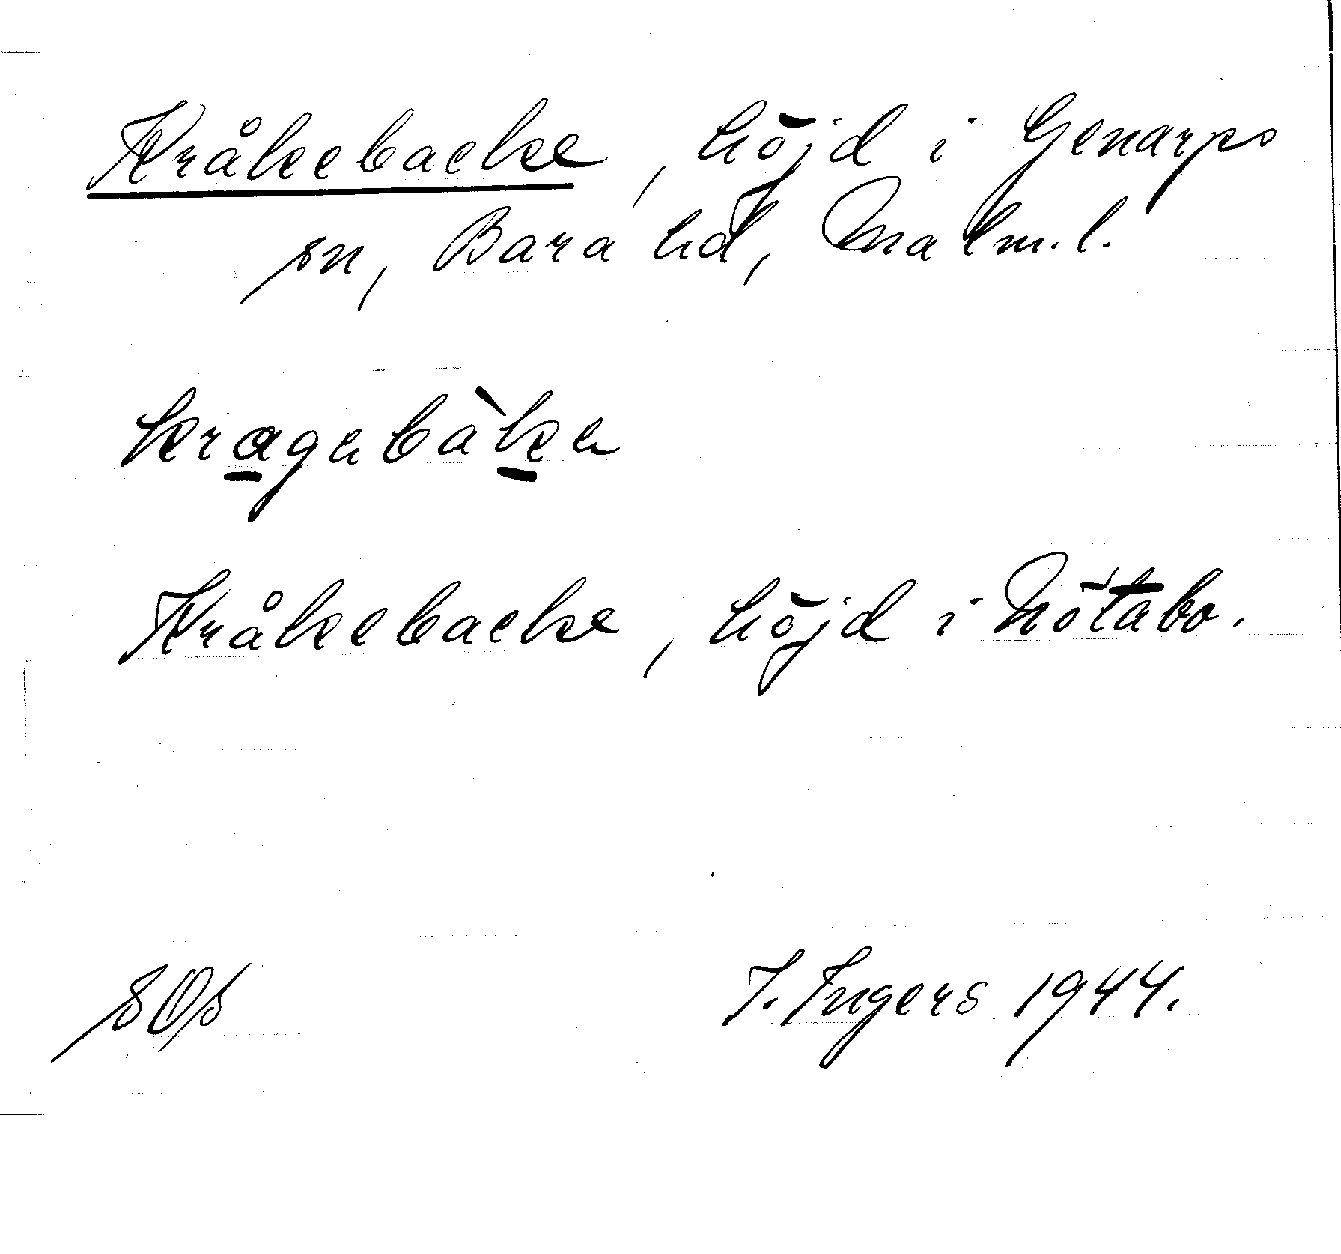 Kråkebacke, höjd i Genarps
sn, Bara hd, Malm. l.
kragabàka
Kråkebacke, höjd i Nötabo.
I. Ingers 1944.